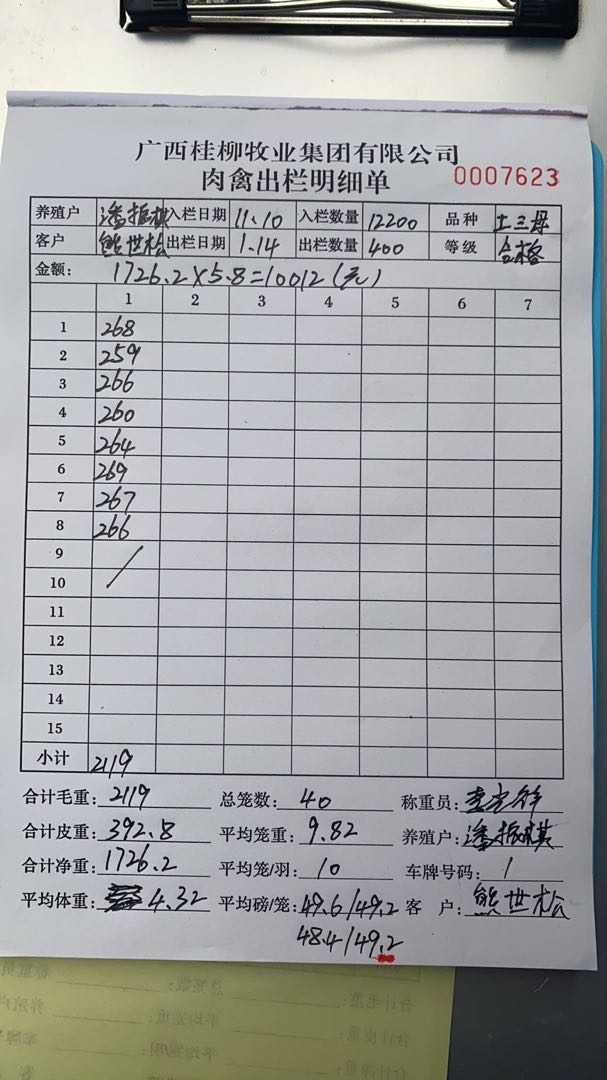 广西桂柳牧业集团有限公司
肉禽出栏明细单 0007623
养殖户 潘振祺 入栏日期 11.10 入栏数量 12200 品种 土三母
客户 熊世松 出栏日期 1.14 出栏数量 400 等级 合格
金额: 1726.2×5.8=10012(元)
1 2 3 4 5 6 7
1 268
2 259
3 266
4 260
5 264
6 269
7 267
8 266
9
10
11
12
13
14
15
小计 2119
合计毛重: 2119 总笼数: 40 称重员:
合计皮重: 392.8 平均笼重: 9.82 养殖户: 潘振祺
合计净重: 1726.2 平均笼/羽: 10 车牌号码: 1
平均体重: 4.32 平均磅/笼: 49.6/49.2 客 户: 熊世松
48.4/49.2